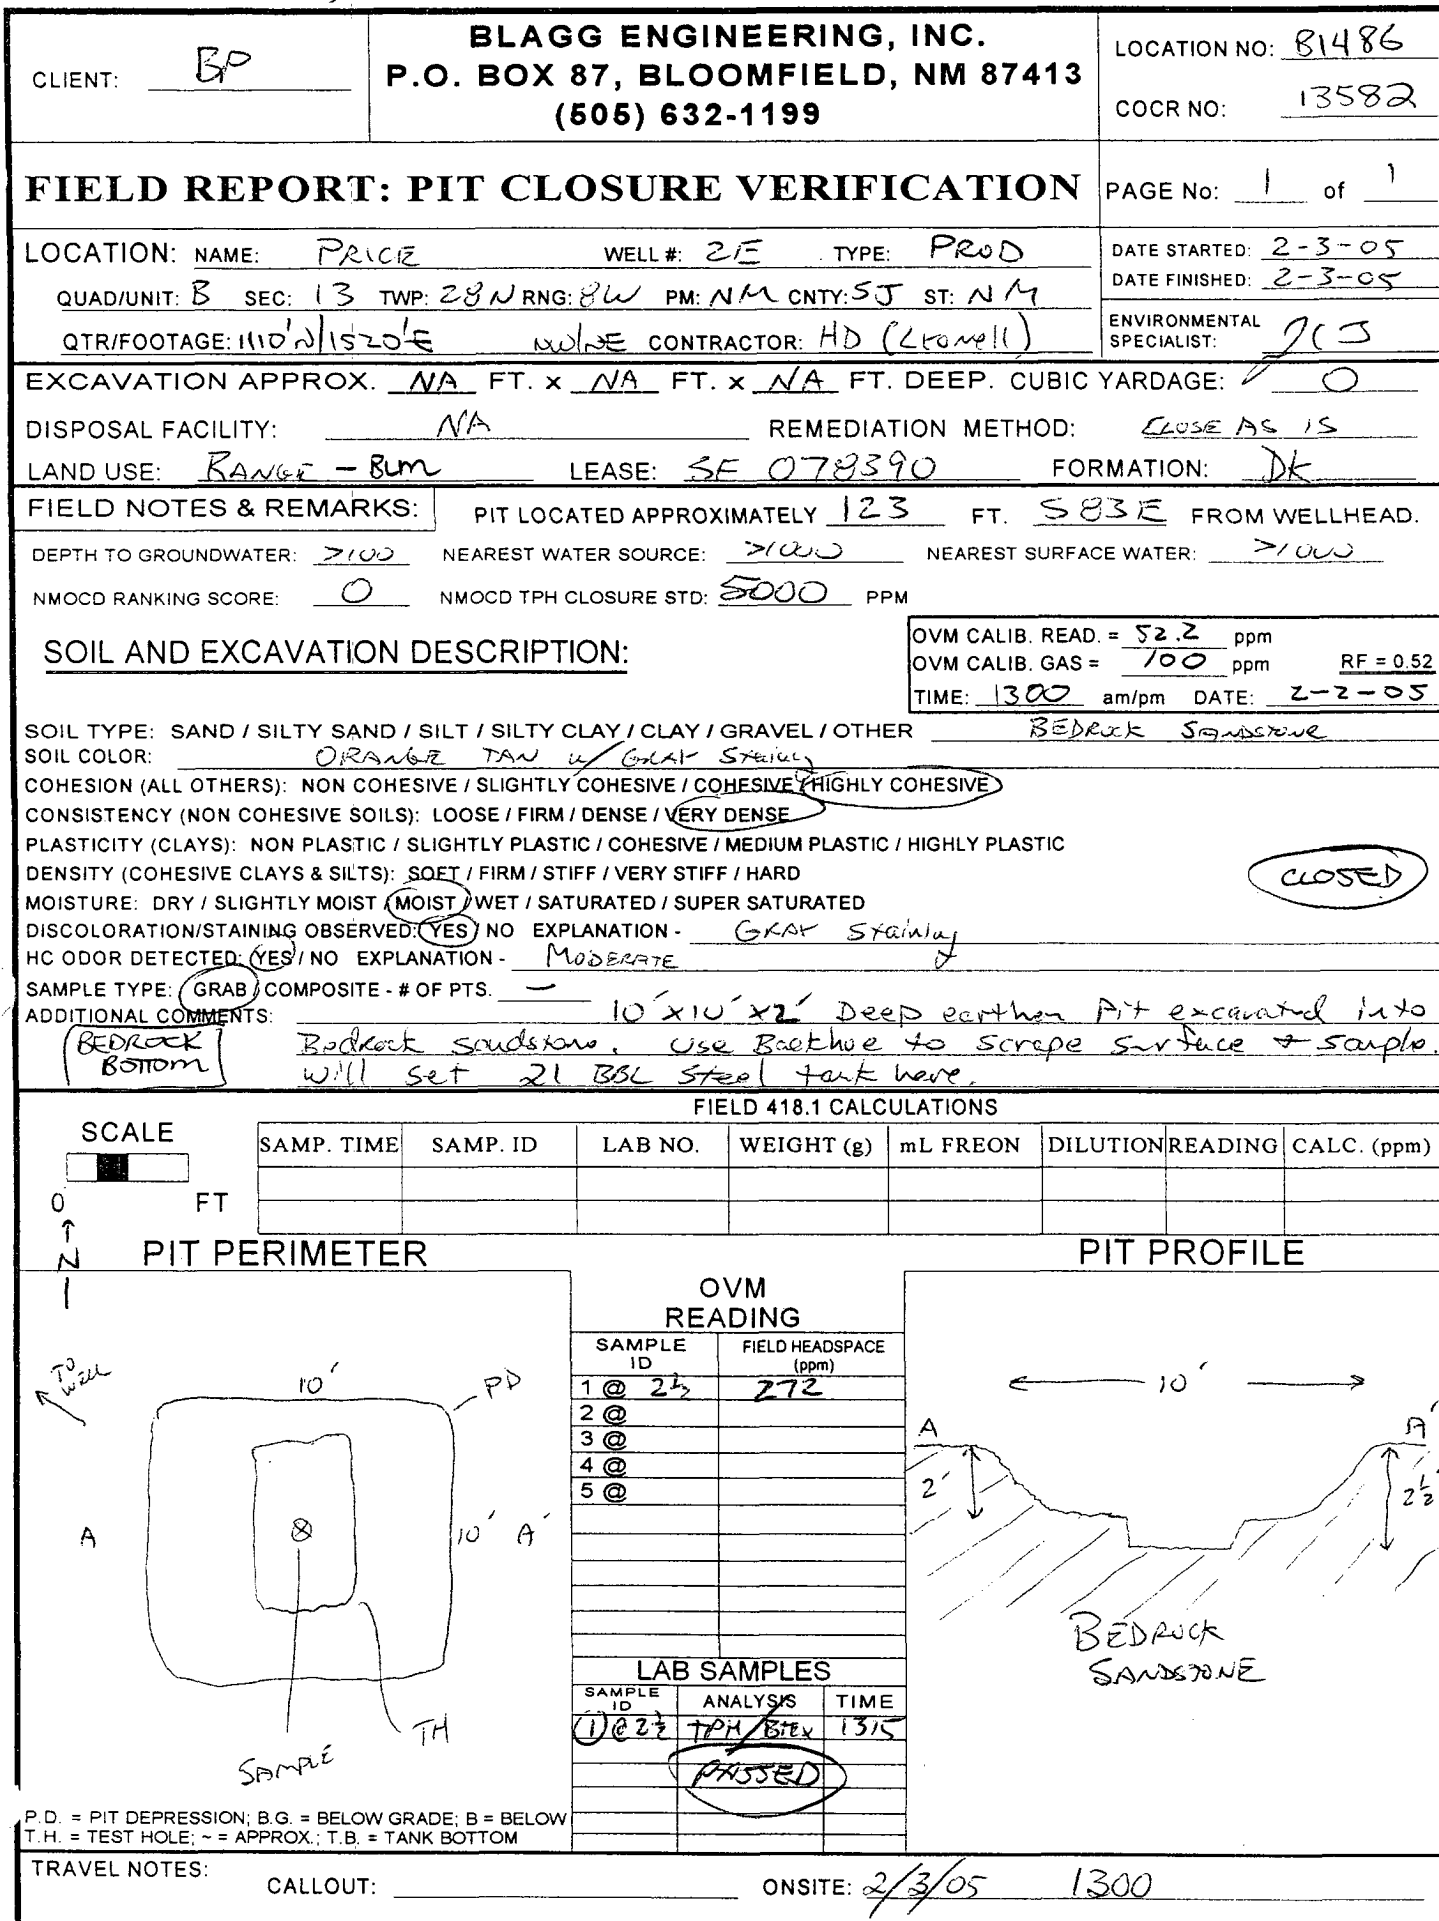 BLAGG ENGINEERING, INC.
CLIENT: BP
P.O. BOX 87, BLOOMFIELD, NM 87413
(505) 632-1199
LOCATION NO: 81486
COCR NO: 13582
FIELD REPORT: PIT CLOSURE VERIFICATION
PAGE No: 1 of 1
LOCATION: NAME: PRICE WELL #: 2E TYPE: PROD
DATE STARTED: 2-3-05
DATE FINISHED: 2-3-05
QUAD/UNIT: B SEC: 13 TWP: 28N RNG: 8W PM: NM CNTY: SJ ST: NM
QTR/FOOTAGE: 1110'N/1520'E NW/NE CONTRACTOR: HD (Leonell)
ENVIRONMENTAL
SPECIALIST: JCJ
EXCAVATION APPROX. NA FT. x NA FT. x NA FT. DEEP. CUBIC YARDAGE: 0
DISPOSAL FACILITY: NA REMEDIATION METHOD: CLOSE AS IS
LAND USE: RANGE - BLM LEASE: SF 078390 FORMATION: DK
FIELD NOTES & REMARKS: PIT LOCATED APPROXIMATELY 123 FT. S83E FROM WELLHEAD.
DEPTH TO GROUNDWATER: >100 NEAREST WATER SOURCE: >1000 NEAREST SURFACE WATER: >1000
NMOCD RANKING SCORE: 0 NMOCD TPH CLOSURE STD: 5000 PPM
SOIL AND EXCAVATION DESCRIPTION:
OVM CALIB. READ. = 52.2 ppm
OVM CALIB. GAS = 100 ppm RF = 0.52
TIME: 1300 am/pm DATE: 2-2-05
SOIL TYPE: SAND / SILTY SAND / SILT / SILTY CLAY / CLAY / GRAVEL / OTHER BEDROCK SANDSTONE
SOIL COLOR: ORANGE TAN w/ GRAY Staining
COHESION (ALL OTHERS): NON COHESIVE / SLIGHTLY COHESIVE / COHESIVE / HIGHLY COHESIVE
CONSISTENCY (NON COHESIVE SOILS): LOOSE / FIRM / DENSE / VERY DENSE
PLASTICITY (CLAYS): NON PLASTIC / SLIGHTLY PLASTIC / COHESIVE / MEDIUM PLASTIC / HIGHLY PLASTIC
DENSITY (COHESIVE CLAYS & SILTS): SOFT / FIRM / STIFF / VERY STIFF / HARD
CLOSED
MOISTURE: DRY / SLIGHTLY MOIST / MOIST / WET / SATURATED / SUPER SATURATED
DISCOLORATION/STAINING OBSERVED: YES / NO EXPLANATION - GRAY Staining
HC ODOR DETECTED: YES / NO EXPLANATION - MODERATE
SAMPLE TYPE: GRAB / COMPOSITE - # OF PTS. —
ADDITIONAL COMMENTS: 10'x10'x2' Deep earthen Pit excavated into
BEDROCK
BOTTOM
Bedrock sandstone. Use Backhoe to scrape surface & sample.
Will set 21 BBL Steel tank here.
FIELD 418.1 CALCULATIONS
SCALE
0 FT
SAMP. TIME SAMP. ID LAB NO. WEIGHT (g) mL FREON DILUTION READING CALC. (ppm)
N
PIT PERIMETER
PIT PROFILE
OVM
READING
SAMPLE ID FIELD HEADSPACE (ppm)
1 @ 2½ 272
2 @
3 @
4 @
5 @
TO WELL
10'
PD
A
10'
A'
TH
SAMPLE
10'
A
A'
2'
2½'
BEDROCK
SANDSTONE
LAB SAMPLES
SAMPLE ID ANALYSIS TIME
(1)@2½ TPH/BTEX 1315
PASSED
P.D. = PIT DEPRESSION; B.G. = BELOW GRADE; B = BELOW
T.H. = TEST HOLE; ~ = APPROX.; T.B. = TANK BOTTOM
TRAVEL NOTES:
CALLOUT: ONSITE: 2/3/05 1300